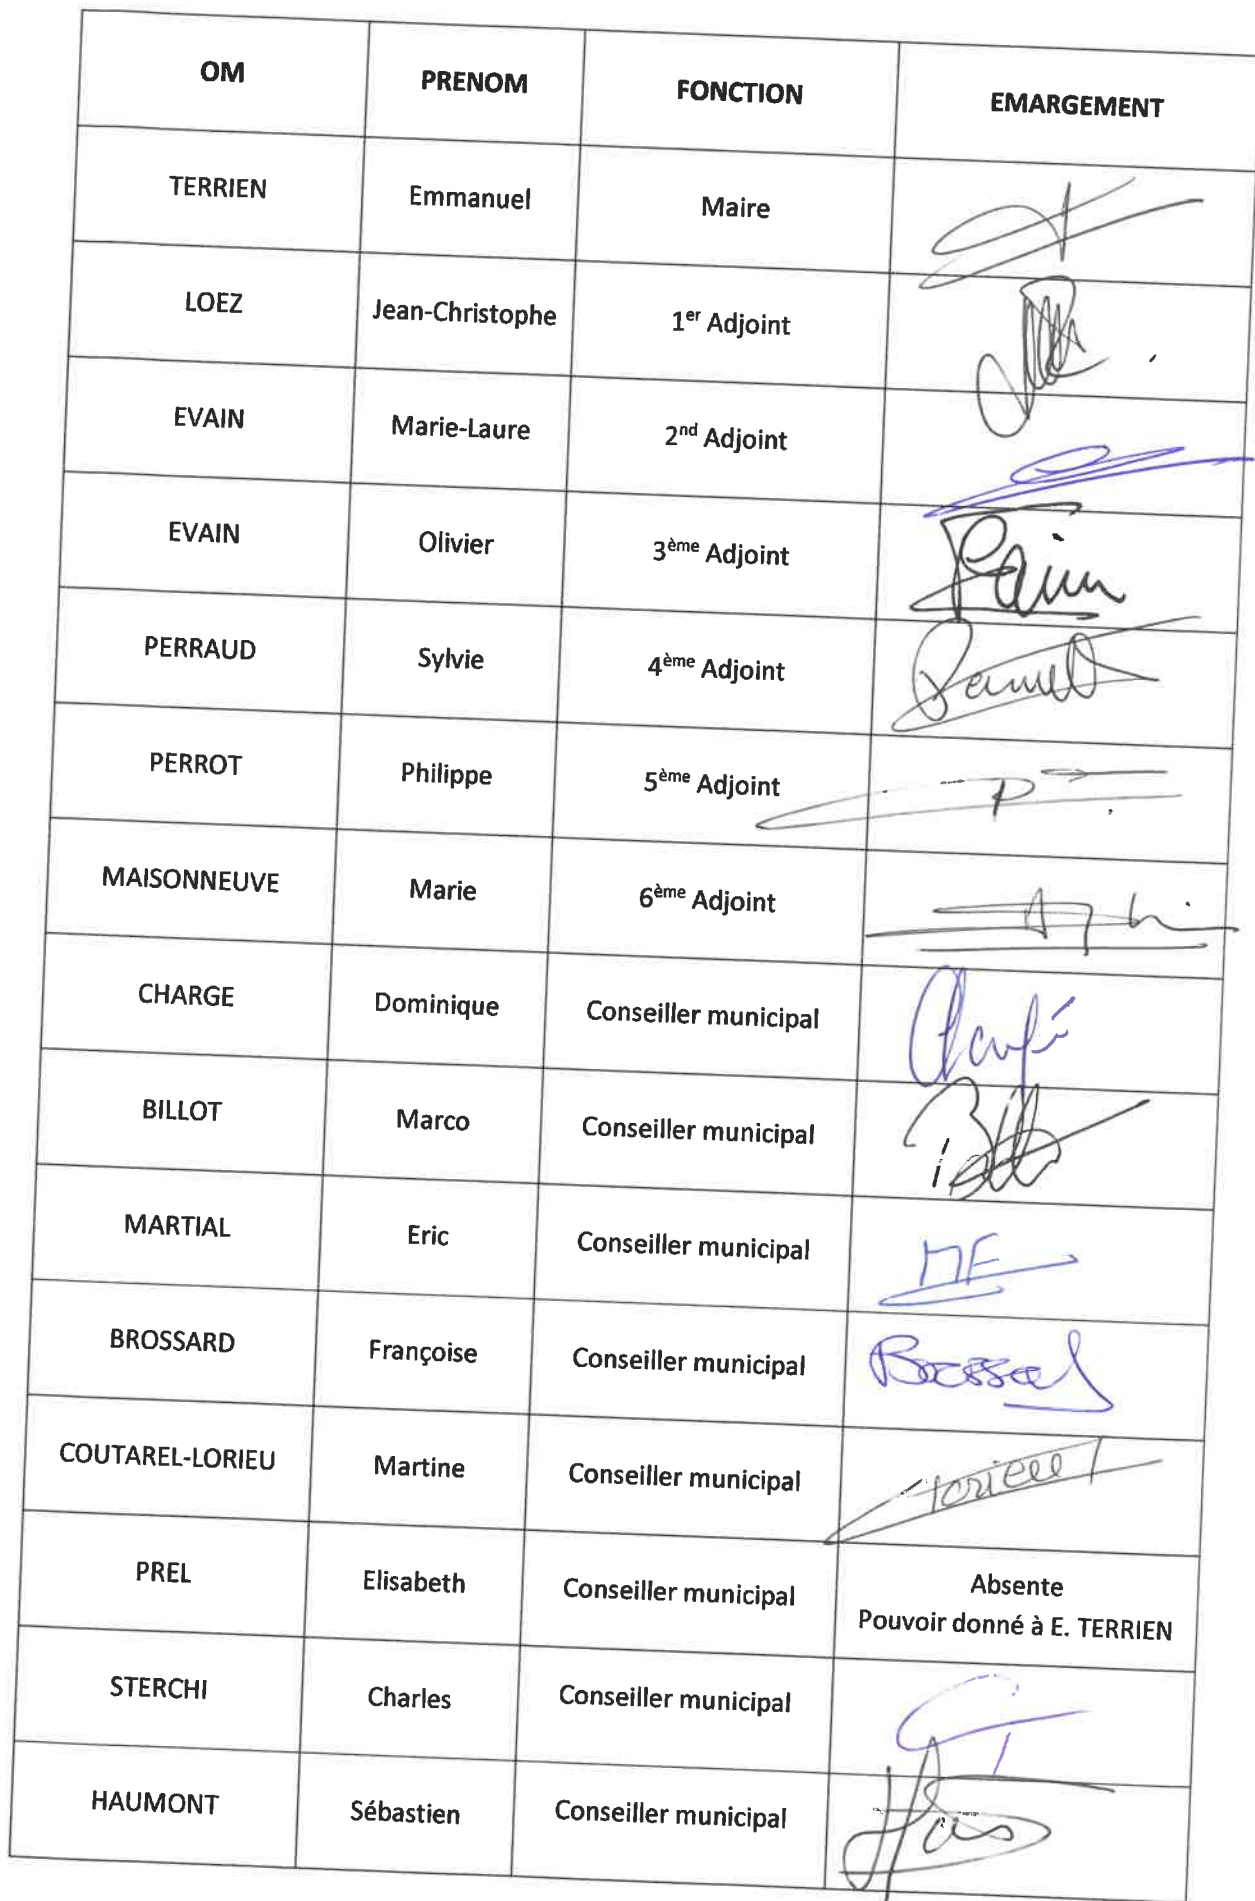 OM PRENOM FONCTION EMARGEMENT
TERRIEN Emmanuel Maire
LOEZ Jean-Christophe 1er Adjoint
EVAIN Marie-Laure 2nd Adjoint
EVAIN Olivier 3ème Adjoint
PERRAUD Sylvie 4ème Adjoint
PERROT Philippe 5ème Adjoint
MAISONNEUVE Marie 6ème Adjoint
CHARGE Dominique Conseiller municipal
BILLOT Marco Conseiller municipal
MARTIAL Eric Conseiller municipal ME
BROSSARD Françoise Conseiller municipal
COUTAREL-LORIEU Martine Conseiller municipal
PREL Elisabeth Conseiller municipal Absente
Pouvoir donné à E. TERRIEN
STERCHI Charles Conseiller municipal
HAUMONT Sébastien Conseiller municipal